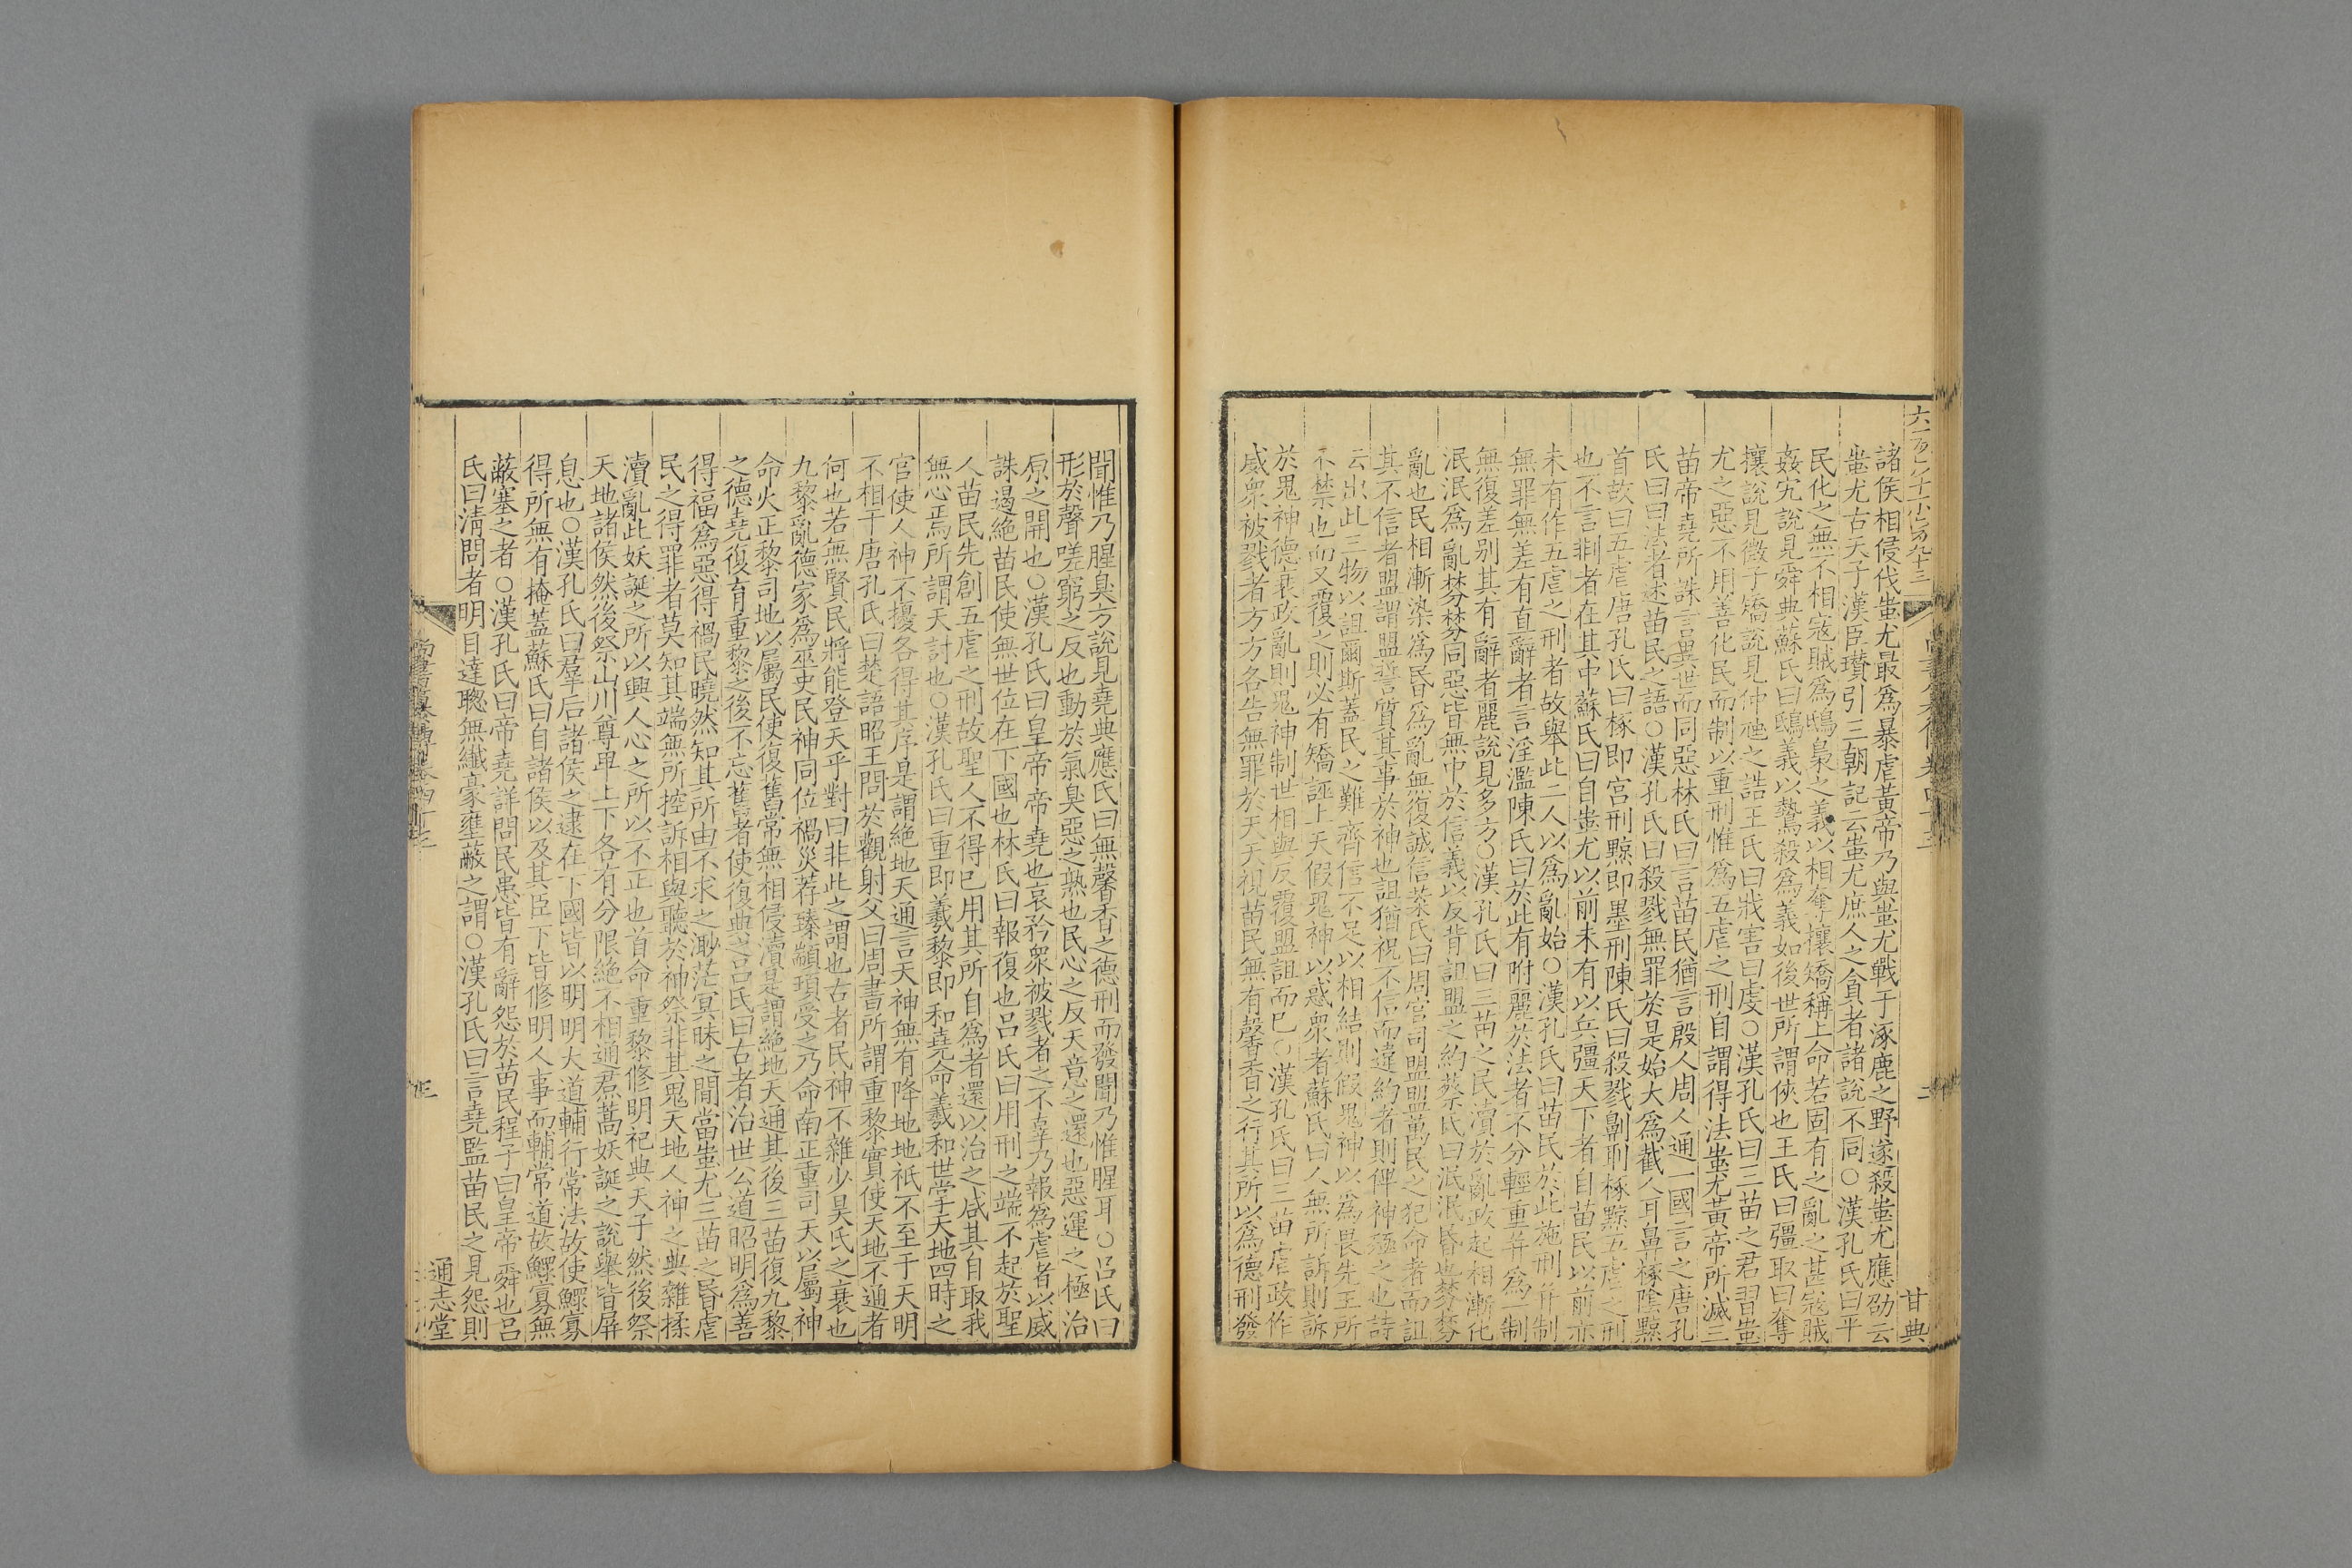 諸侯相侵伐蚩尤最爲暴虐黃帝乃與蚩尤戰于涿鹿之野遂殺蚩尤應劭云
蚩尤古天子漢臣瓉引三朝記云蚩尤庶人之貪者諸說不同○漢孔氏曰平
民化之無不相寇賊爲鴟梟之義以相奪攘矯稱上命若固有之亂之甚寇賊
姦宄說見舜典蘇氏曰鴟義以鷙殺爲義如後世所謂俠也王氏曰彊取曰奪
攘說見微子矯說見仲虺之誥王氏曰戕害曰虔○漢孔氏曰三苗之君習蚩
尤之惡不用善化民而制以重刑惟爲五虐之刑自謂得法蚩尤黃帝所滅三
苗帝堯所誅言異世而同惡林氏曰言苗民猶言殷人周人通一國言之唐孔
氏曰曰法者述苗民之語○漢孔氏曰殺戮無罪於是始大爲截人耳鼻椓陰黥
首故曰五虐唐孔氏曰椓即宫刑黥即墨刑陳氏曰殺戮劓刵椓黥五虐之刑
也不言剕者在其中蘇氏曰自蚩尤以前未有以兵彊天下者自苗民以前亦
未有作五虐之刑者故舉此二人以爲亂始○漢孔氏曰苗民於此施刑幷制
無罪無差有直辭者言淫濫陳氏曰於此有附麗於法者不分輕重幷爲一制
無復差别其有辭者麗說見多方○漢孔氏曰三苗之民瀆於亂政起相漸化
泯泯爲亂棼棼同惡皆無中於信義以反背詛盟之約蔡氏曰泯泯昏也棼棼
亂也民相漸染爲昏爲亂無復誠信葉氏曰周官司盟盟萬民之犯命者而詛
其不信者盟謂盟誓質其事於神也詛猶祝不信而違約者則俾神殛之也詩
云出此三物以詛爾斯蓋民之難齊信不足以相結則假鬼神以爲畏先王所
不禁也而又覆之則必有矯誣上天假鬼神以惑衆者蘇氏曰人無所訴則訴
於鬼神德衰政亂則鬼神制世相與反覆盟詛而已○漢孔氏曰三苗虐政作
威衆被戮者方方各告無罪於天天視苗民無有馨香之行其所以爲德刑發
甘典
聞惟乃腥臭方說見堯典應氏曰無馨香之德刑而發聞乃惟腥耳○呂氏曰
形於聲嗟窮之反也動於氣臭惡之熟也民心之反天意之還也惡運之極治
原之開也○漢孔氏曰皇帝帝堯也哀矜衆被戮者之不辜乃報爲虐者以威
誅遏絶苗民使無世位在下國也林氏曰報復也呂氏曰用刑之端不起於聖
人苗民先創五虐之刑故聖人不得已用其所自爲者還以治之咸其自取我
無心焉所謂天討也○漢孔氏曰重即羲黎即和堯命羲和世掌天地四時之
官使人神不擾各得其序是謂絶地天通言天神無有降地地祇不至于天明
不相干唐孔氏曰楚語昭王問於觀射父曰周書所謂重黎實使天地不通者
何也若無賢民將能登天乎對曰非此之謂也古者民神不雜少昊氏之衰也
九黎亂德家爲巫史民神同位禍災荐臻顓頊受之乃命南正重司天以屬神
命火正黎司地以屬民使復舊常無相侵瀆是謂絶地天通其後三苗復九黎
之德堯復育重黎之後不忘舊者使復典之呂氏曰古者治世公道昭明爲善
得福爲惡得禍民曉然知其所由不求之渺茫冥昧之間當蚩尤三苗之昏虐
民之得罪者莫知其端無所控訴相與聽於神祭非其鬼天地人神之典雜揉
瀆亂此妖誕之所以興人心之所以不正也首命重黎修明祀典天子然後祭
天地諸侯然後祭山川尊卑上下各有分限絶不相通焄蒿妖誕之說舉皆屏
息也○漢孔氏曰羣后諸侯之逮在下國皆以明明大道輔行常法故使鰥寡
得所無有掩蓋蘇氏曰自諸侯以及其臣下皆修明人事而輔常道故鰥寡無
蔽塞之者○漢孔氏曰帝堯詳問民患皆有辭怨於苗民程子曰皇帝舜也呂
氏曰淸問者明目達聦無纖豪壅蔽之謂○漢孔氏曰言堯監苗民之見怨則
通志堂